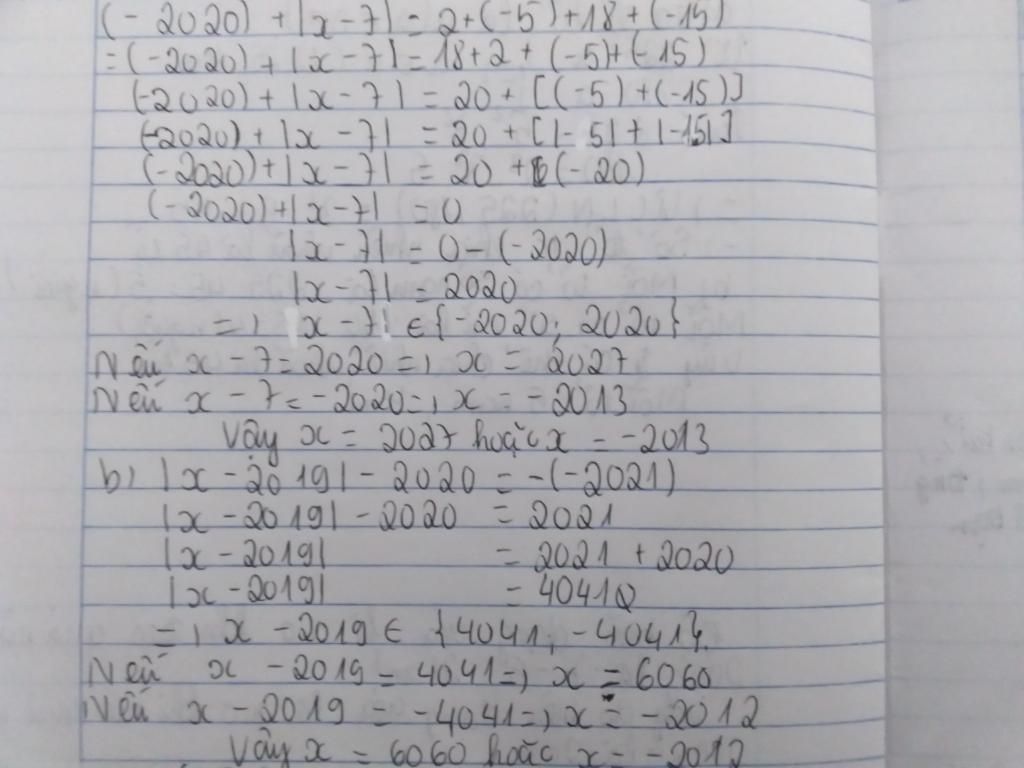 (-2020) + |x - 7| = 2 + (-5) + 18 + (-15)
= (-2020) + |x - 7| = 18 + 2 + (-5) + (-15)
(-2020) + |x - 7| = 20 + [(-5) + (-15)]
(-2020) + |x - 7| = 20 + [|-5| + |-15|]
(-2020) + |x - 7| = 20 + (-20)
(-2020) + |x - 7| = 0
|x - 7| = 0 - (-2020)
|x - 7| = 2020
=, x - 7 ∈ {-2020; 2020}
Nếu x - 7 = 2020 =, x = 2027
Nếu x - 7 = -2020 =, x = -2013
Vậy x = 2027 hoặc x = -2013
b, |x - 2019| - 2020 = -(-2021)
|x - 2019| - 2020 = 2021
|x - 2019| = 2021 + 2020
|x - 2019| = 4041
=, x - 2019 ∈ {4041, -4041}
Nếu x - 2019 = 4041 =, x = 6060
Nếu x - 2019 = -4041 =, x = -2012
Vậy x = 6060 hoặc x = -2012